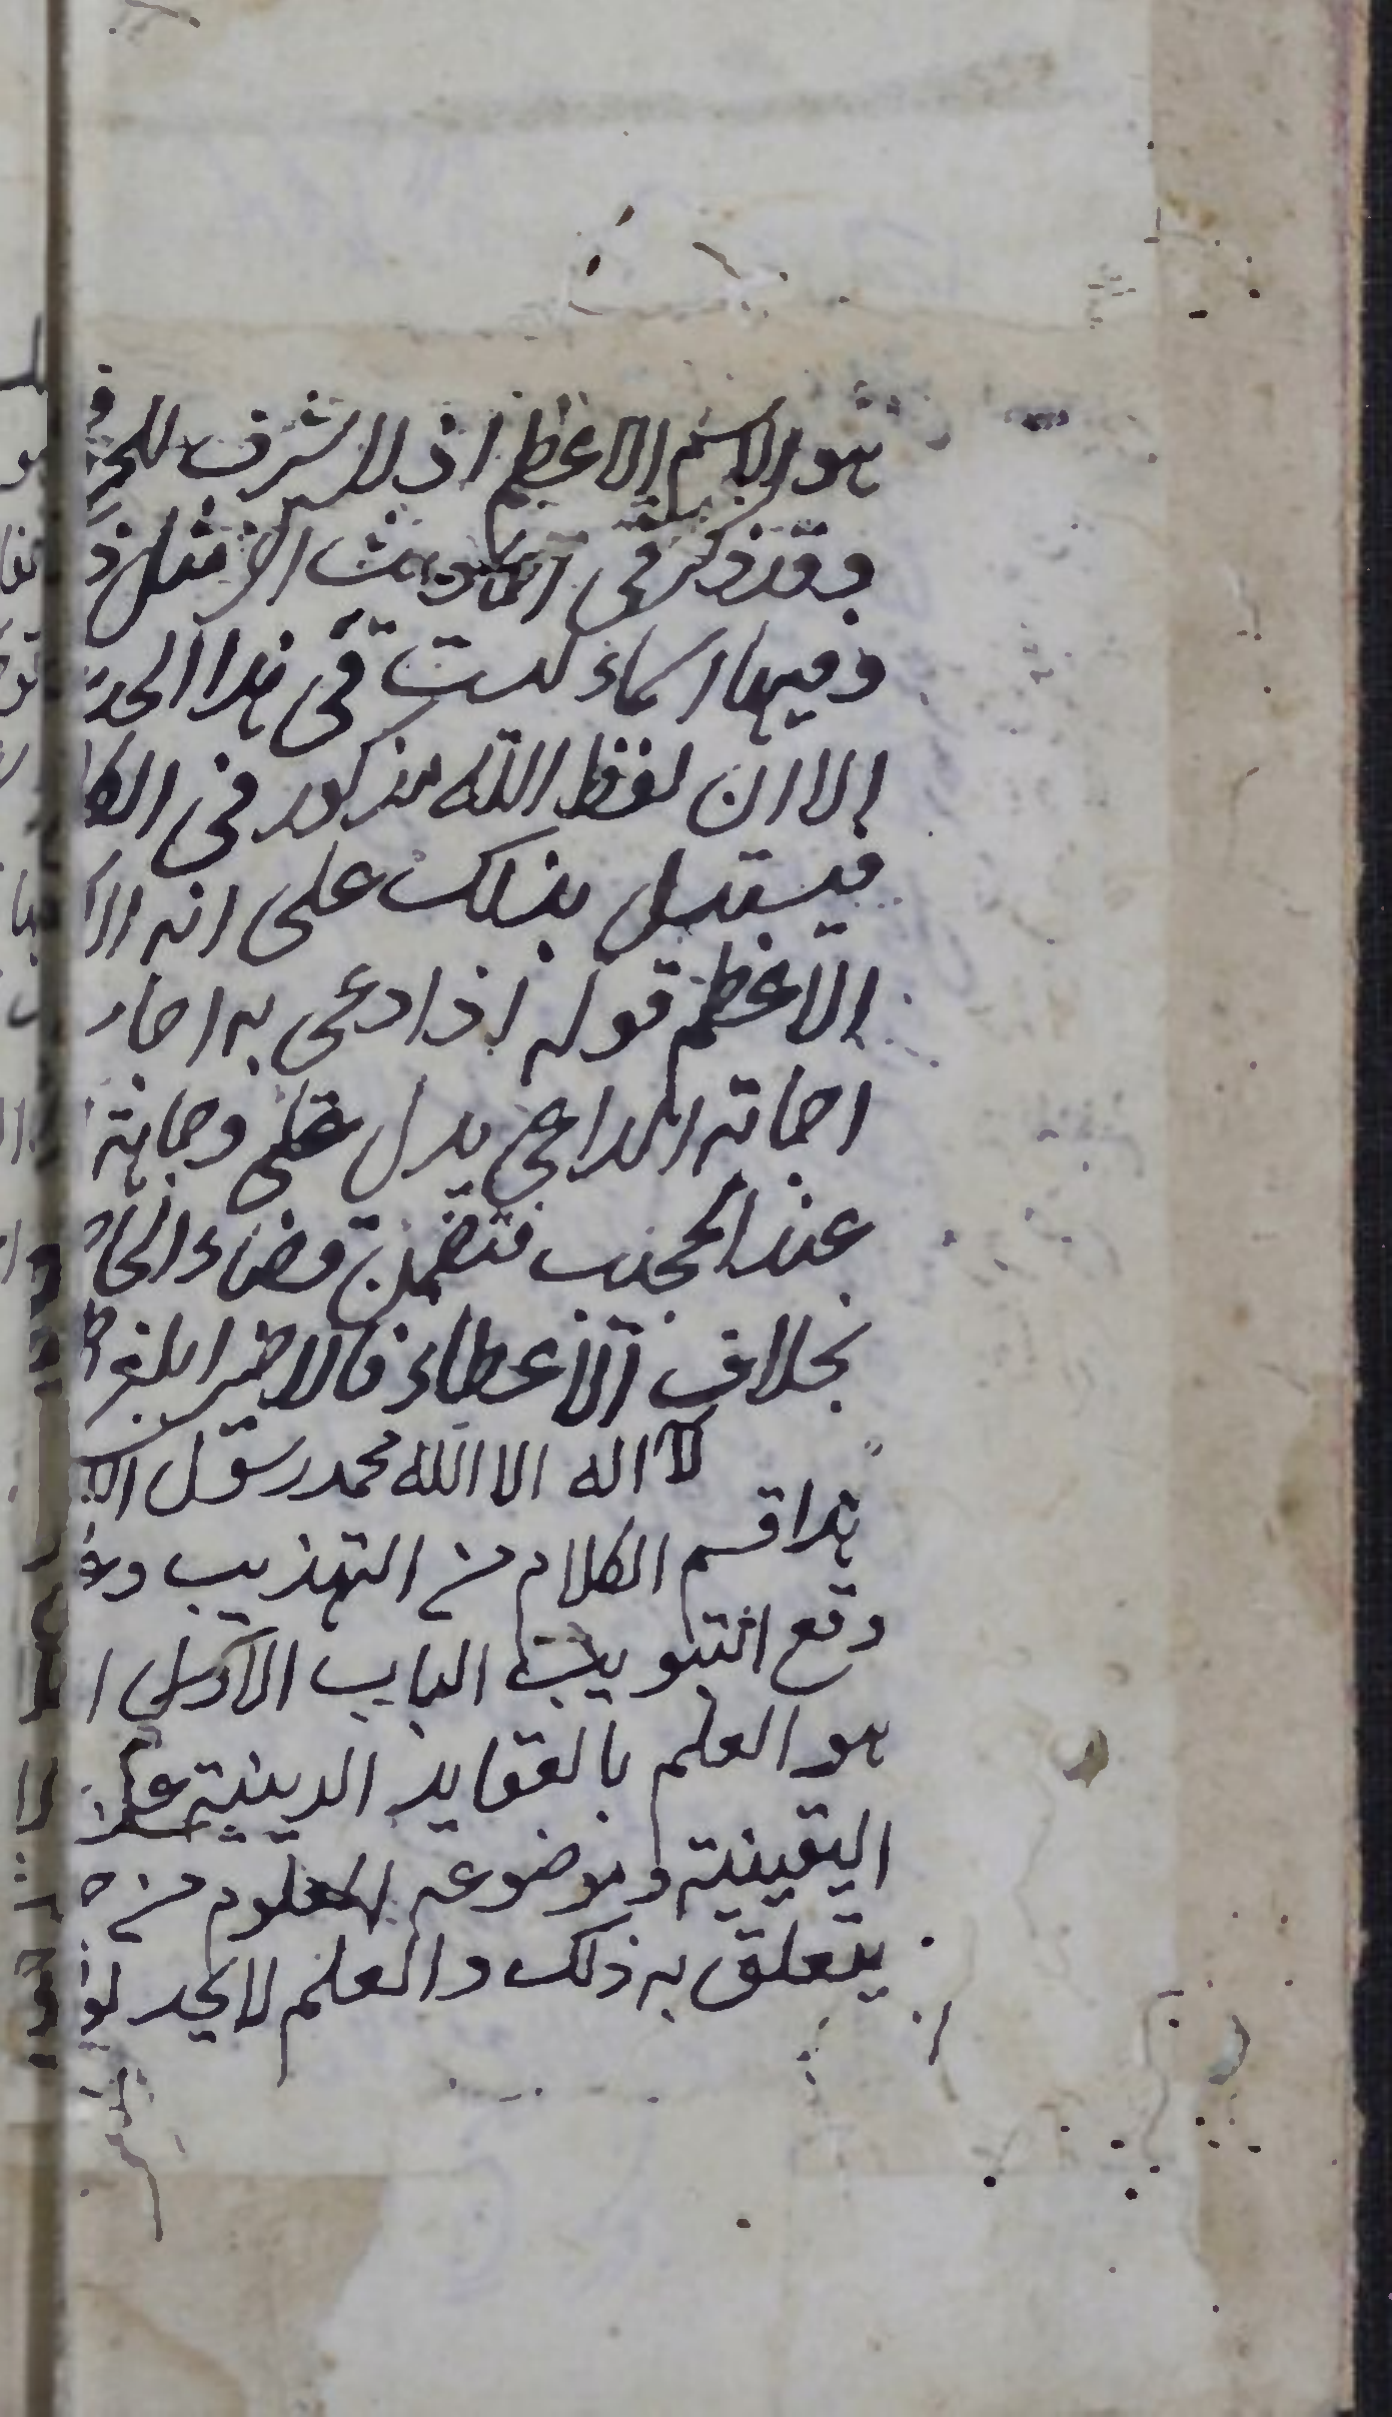 هو الاسم الاعظم اذ لا شرف للحر
وقد ذكر في احاديث اخر مثل ذ
وفيها اسماء ليست في هذا الحد
الا ان لفظ الله مذكور في الكل
فيستدل بذلك على انه الا
الاعظم قوله اذا دعى به اجاب
اجابة الداعي يدل على وجاهة
عند المجيب فتضمن قضاء الحا
بخلاف الاعطاء فالاخير ابلغ
لا اله الا الله محمد رسول الله
هذا قسم الكلام من التهذيب و
وقع التبويب الباب الاول ا
هو العلم بالعقايد الدينية عن
اليقينية وموضوعه المعلوم من ح
يتعلق به ذلك والعلم لا يحد لو